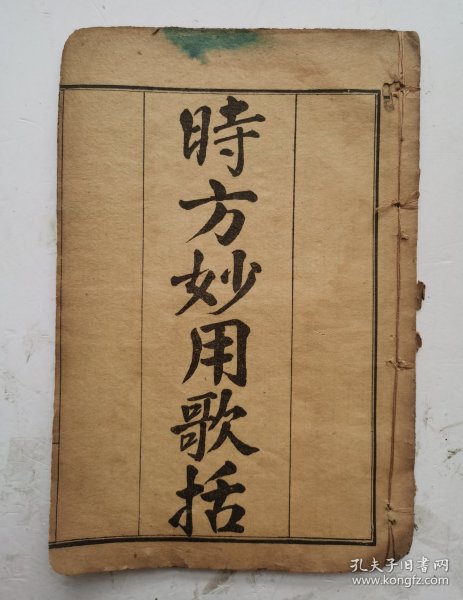 時方妙用歌括
孔夫子旧书网
www.kongfz.com